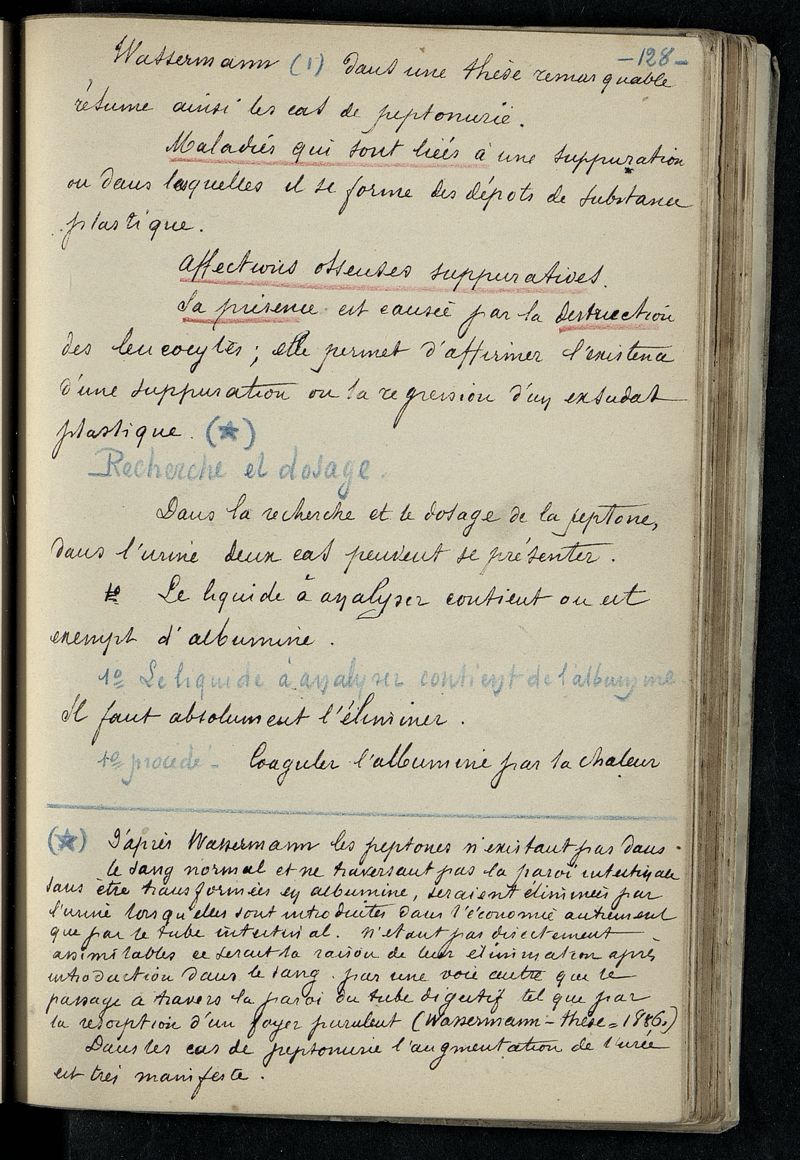 -128-
Wassermann (1) dans une thèse remarquable
résume ainsi les cas de peptonurie.
Maladies qui sont liées à une suppuration
ou dans lesquelles il se forme des dépots de substance
plastique.
Affections osseuses suppuratives.
Sa présence est causée par la destruction
des leucocytes ; elle permet d'affirmer l'existence
d'une suppuration ou la regression d'un exsudat
plastique. (★)
Recherche et dosage.
Dans la recherche et le dosage de la peptone,
dans l'urine deux cas peuvent se présenter.
Le liquide à analyser contient ou est
exempt d'albumine.
1º Le liquide à analyser contient de l'albumine.
Il faut absolument l'éliminer.
1º procédé - Coaguler l'albumine par la chaleur
(★) D'après Wassermann les peptones n'existant pas dans
le sang normal et ne traversant pas la paroi intestinale
sans être transformées en albumine, seraient éliminées par
l'urine lorsqu'elles sont introduites dans l'économie autrement
que par le tube intestinal. N'étant pas directement
assimilables ce serait la raison de leur élimination après
introduction dans le sang par une voie autre que le
passage à travers la paroi du tube digestif tel que par
la résorption d'un foyer purulent (Wassermann - thèse = 1886.)
Dans les cas de peptonurie l'augmentation de l'urée
est très manifeste.